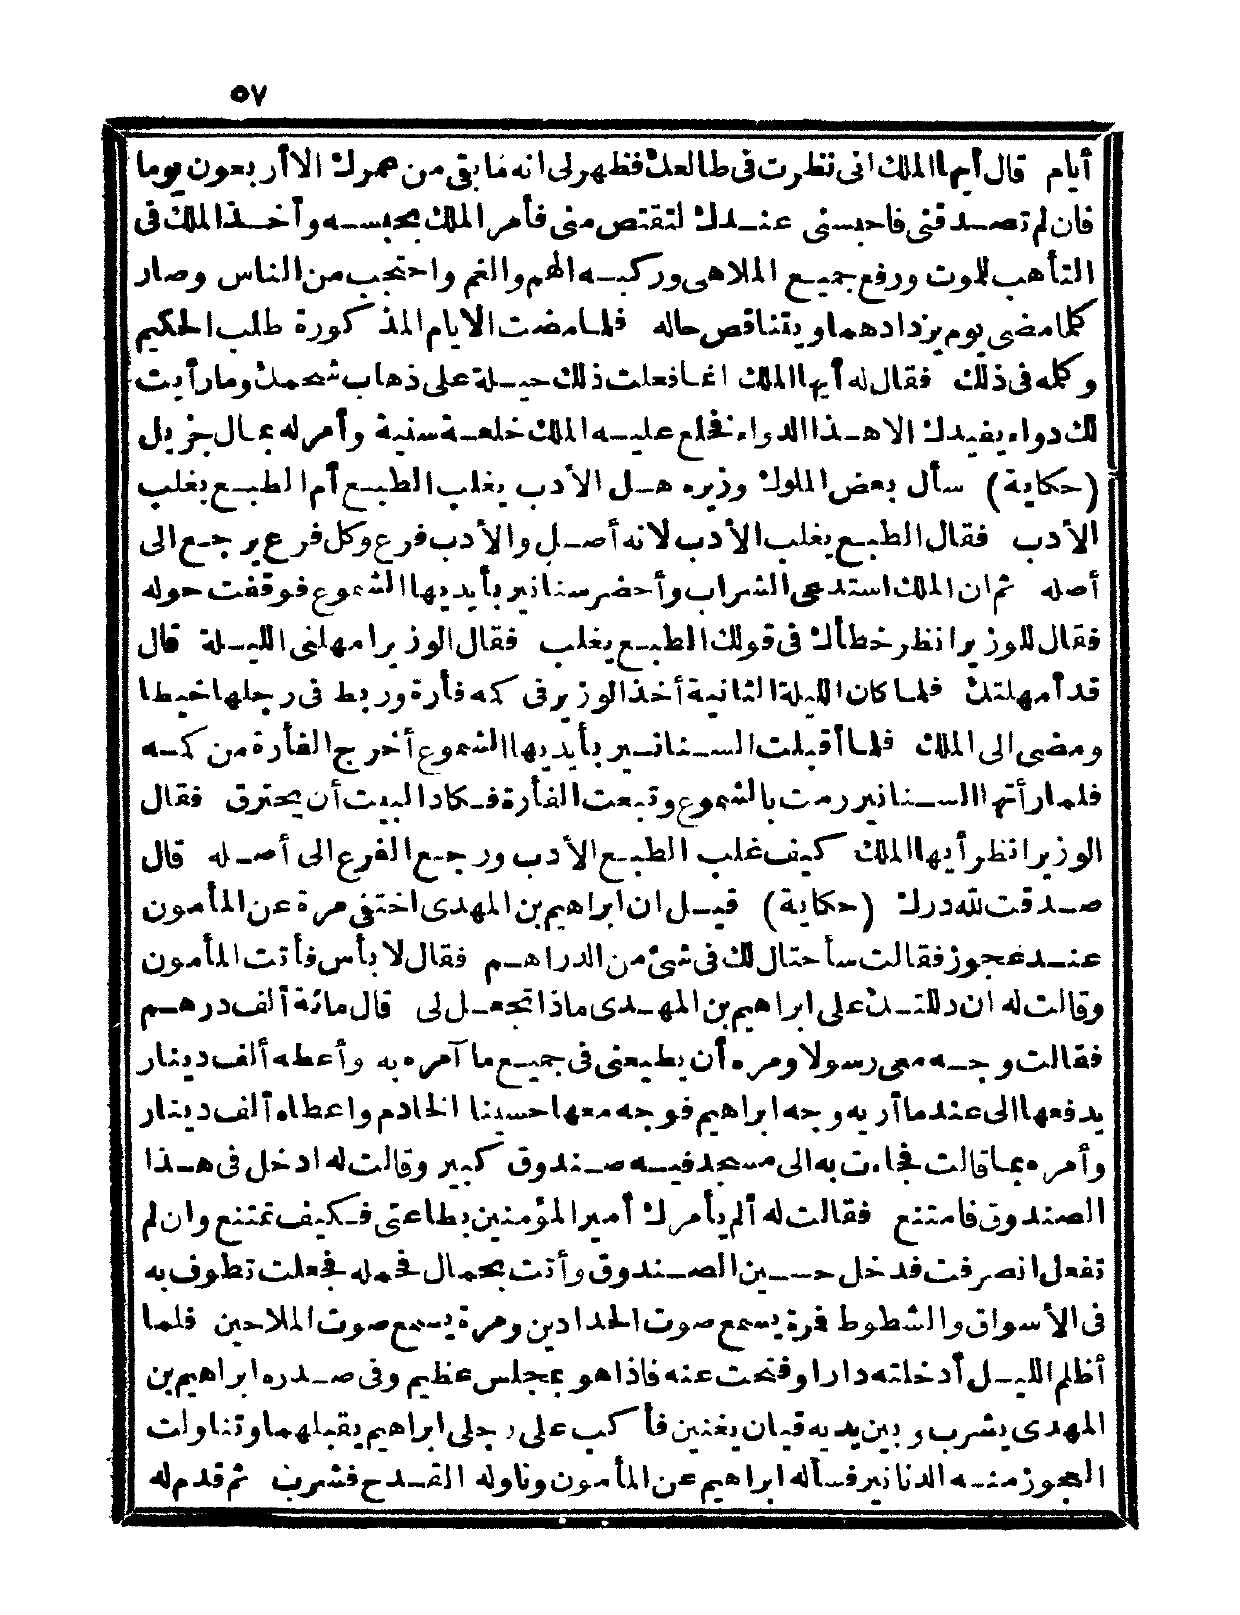 ٥٧
أيام قال أيها الملك انى نظرت فى طالعك فظهر لى انه ما بقى من عمرك الا أربعون يوما
فان لم تصدقنى فاحبسنى عندك لتقتص منى فأمر الملك بحبسه وأخذ الملك فى
التأهب للموت ورفع جميع الملاهى وركبه الهم والغم واحتجب من الناس وصار
كلما مضى يوم يزداد هما ويتناقص حاله فلما مضت الايام المذكورة طلب الحكيم
وكله فى ذلك فقال له أيها الملك انما فعلت ذلك حيلة على ذهاب شحمك وما رأيت
لك دواء يفيدك الا هذا الدواء فخلع عليه الملك خلعة سنية وأمر له بمال جزيل
(حكاية) سأل بعض الملوك وزيره هل الأدب يغلب الطبع أم الطبع يغلب
الأدب فقال الطبع يغلب الأدب لانه أصل والأدب فرع وكل فرع يرجع الى
أصله ثم ان الملك استدعى الشراب وأحضر سنانير بأيديها الشموع فوقفت حوله
فقال للوزير انظر خطأك فى قولك الطبع يغلب فقال الوزير امهلنى الليلة قال
قد أمهلتك فلما كان الليلة الثانية أخذ الوزير فى كمه فأرة وربط فى رجلها خيطا
ومضى الى الملك فلما أقبلت السنانير بأيديها الشموع أخرج الفأرة من كمه
فلما رأتها السنانير رمت بالشموع وتبعت الفأرة فكاد البيت أن يحترق فقال
الوزير انظر أيها الملك كيف غلب الطبع الأدب ورجع الفرع الى أصله قال
صدقت لله درك (حكاية) قيل ان ابراهيم بن المهدى اختفى مرة عن المأمون
عند عجوز فقالت سأحتال لك فى شئ من الدراهم فقال لا بأس فأتت المأمون
وقالت له ان دللتك على ابراهيم بن المهدى ماذا تجعل لى قال مائة ألف درهم
فقالت وجه معى رسولا ومره أن يطيعنى فى جميع ما آمره به وأعطه ألف دينار
يدفعها الى عندما أريه وجه ابراهيم فوجه معها حسينا الخادم واعطاه ألف دينار
وأمره بما قالت فجاءت به الى مسجد فيه صندوق كبير وقالت له ادخل فى هذا
الصندوق فامتنع فقالت له ألم يأمرك أمير المؤمنين بطاعتى فكيف تمتنع وان لم
تفعل انصرفت فدخل حسين الصندوق وأتت بحمال فحمله فجعلت تطوف به
فى الأسواق والشطوط فمرة يسمع صوت الحدادين ومرة يسمع صوت الملاحين فلما
أظلم الليل أدخلته دارا وفتحت عنه فاذا هو بمجلس عظيم وفى صدره ابراهيم بن
المهدى يشرب وبين يديه قيان يغنين فأكب على رجلى ابراهيم يقبلهما وتناولت
العجوز منه الدنانير فسأله ابراهيم عن المأمون وناوله القدح فشرب ثم قدم له